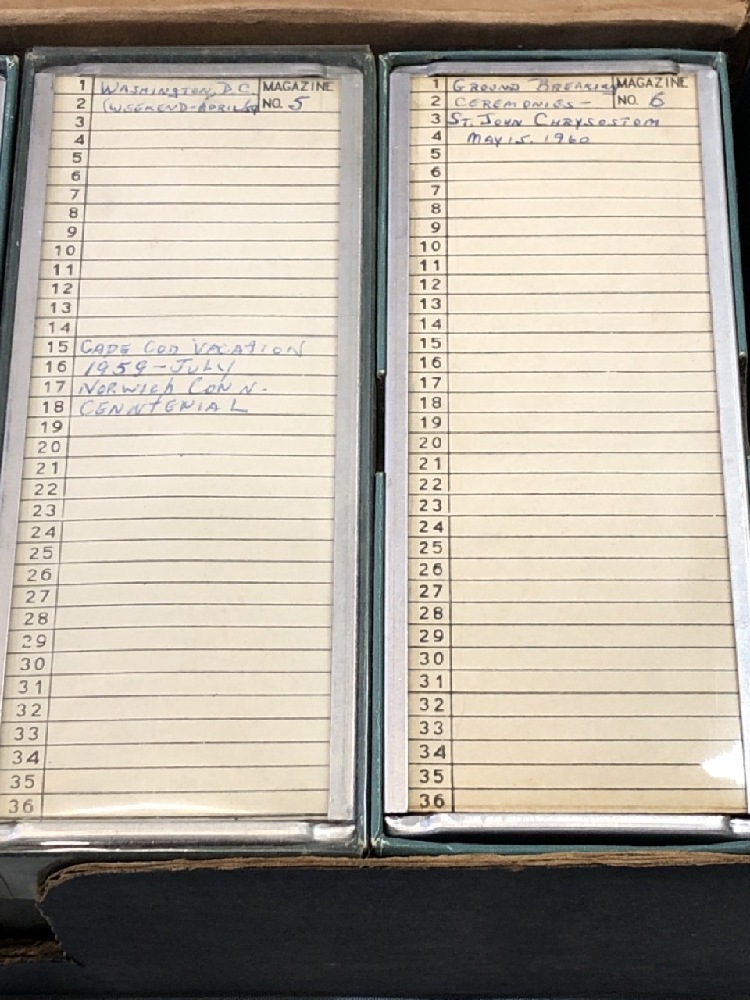 1 WASHINGTON, D.C. MAGAZINE
2 (WEEKEND-APRIL NO. 5
3
4
5
6
7
8
9
10
11
12
13
14
15 CAPE COD VACATION
16 1959-JULY
17 NORWICH CONN.
18 CENNTENIAL
19
20
21
22
23
24
25
26
27
28
29
30
31
32
33
34
35
36
1 GROUND BREAKING MAGAZINE
2 CEREMONIES- NO. 6
3 ST. JOHN CHRYSOSTOM
4 MAY 15. 1960
5
6
7
8
9
10
11
12
13
14
15
16
17
18
19
20
21
22
23
24
25
26
27
28
29
30
31
32
33
34
35
36